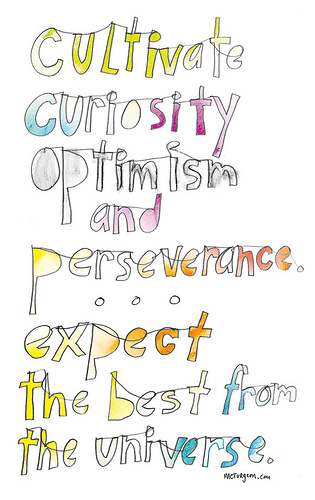 cultivate
curiosity
optimism
and
perseverance.
...
expect
the best from
the universe.
mcturgem.com